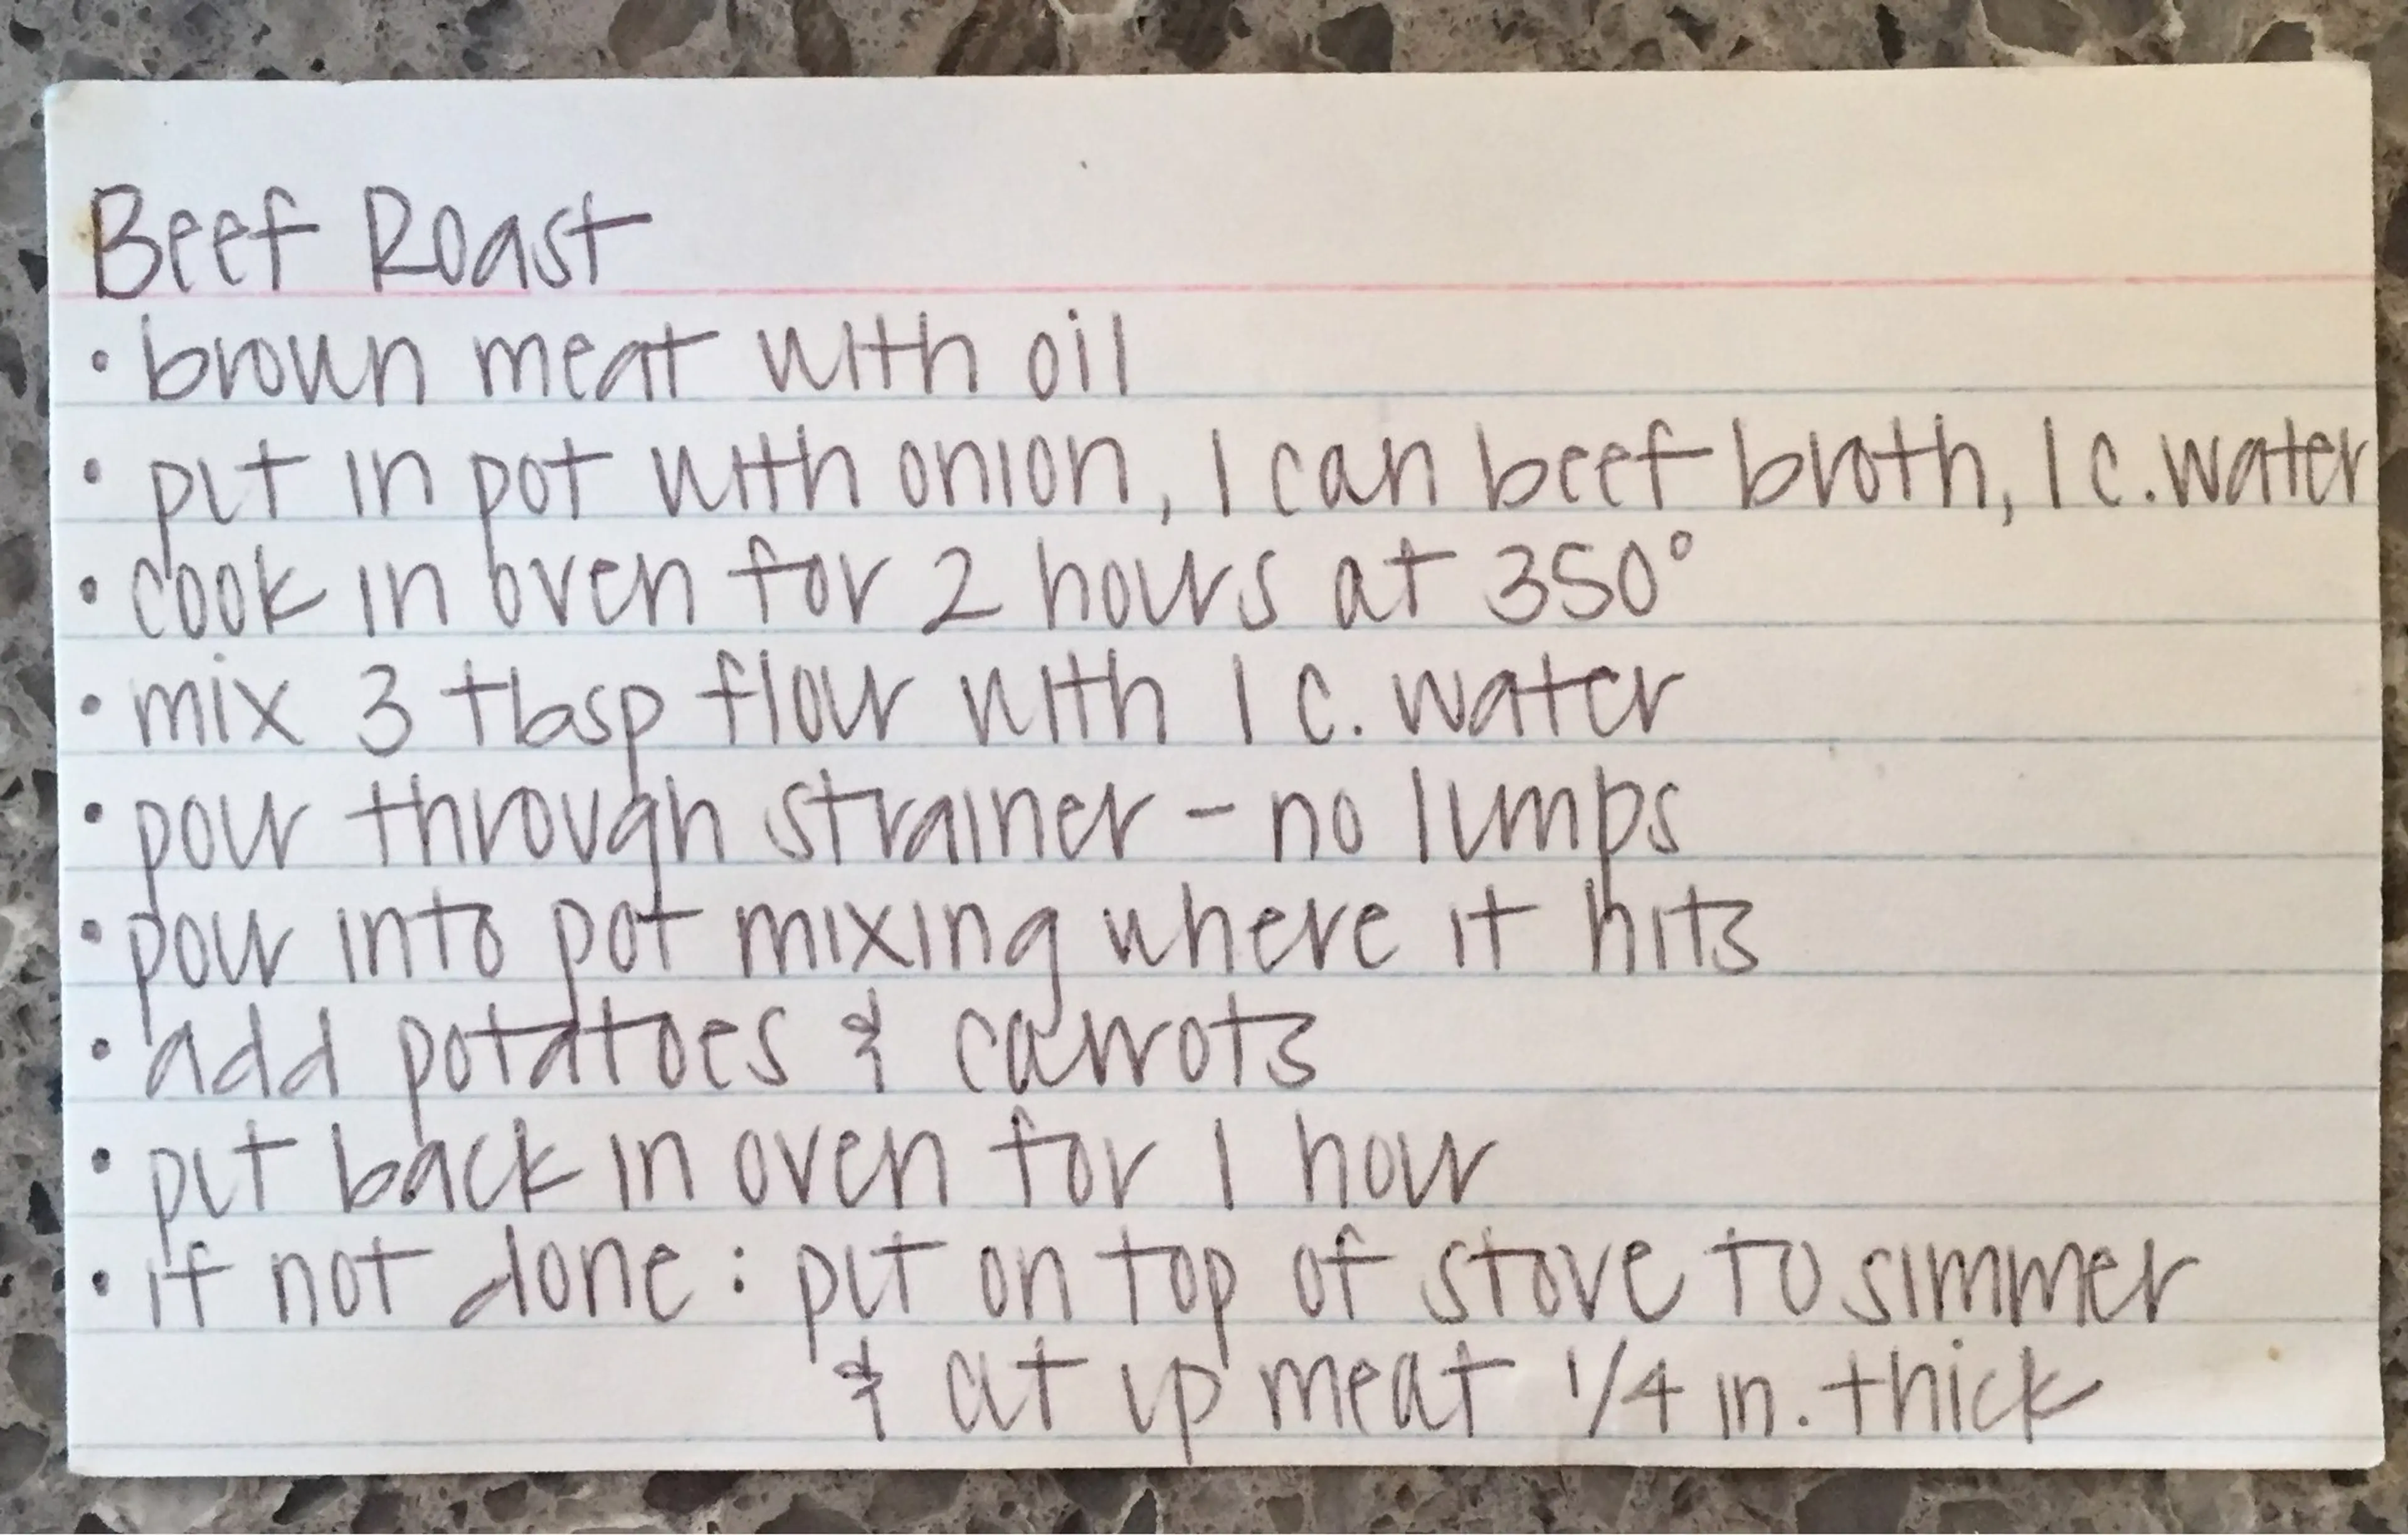 Beef Roast
• brown meat with oil
• put in pot with onion, 1 can beef broth, 1 c. water
• cook in oven for 2 hours at 350°
• mix 3 tbsp flour with 1 c. water
• pour through strainer - no lumps
• pour into pot mixing where it hits
• add potatoes & carrots
• put back in oven for 1 hour
• if not done: put on top of stove to simmer
& cut up meat 1/4 in. thick